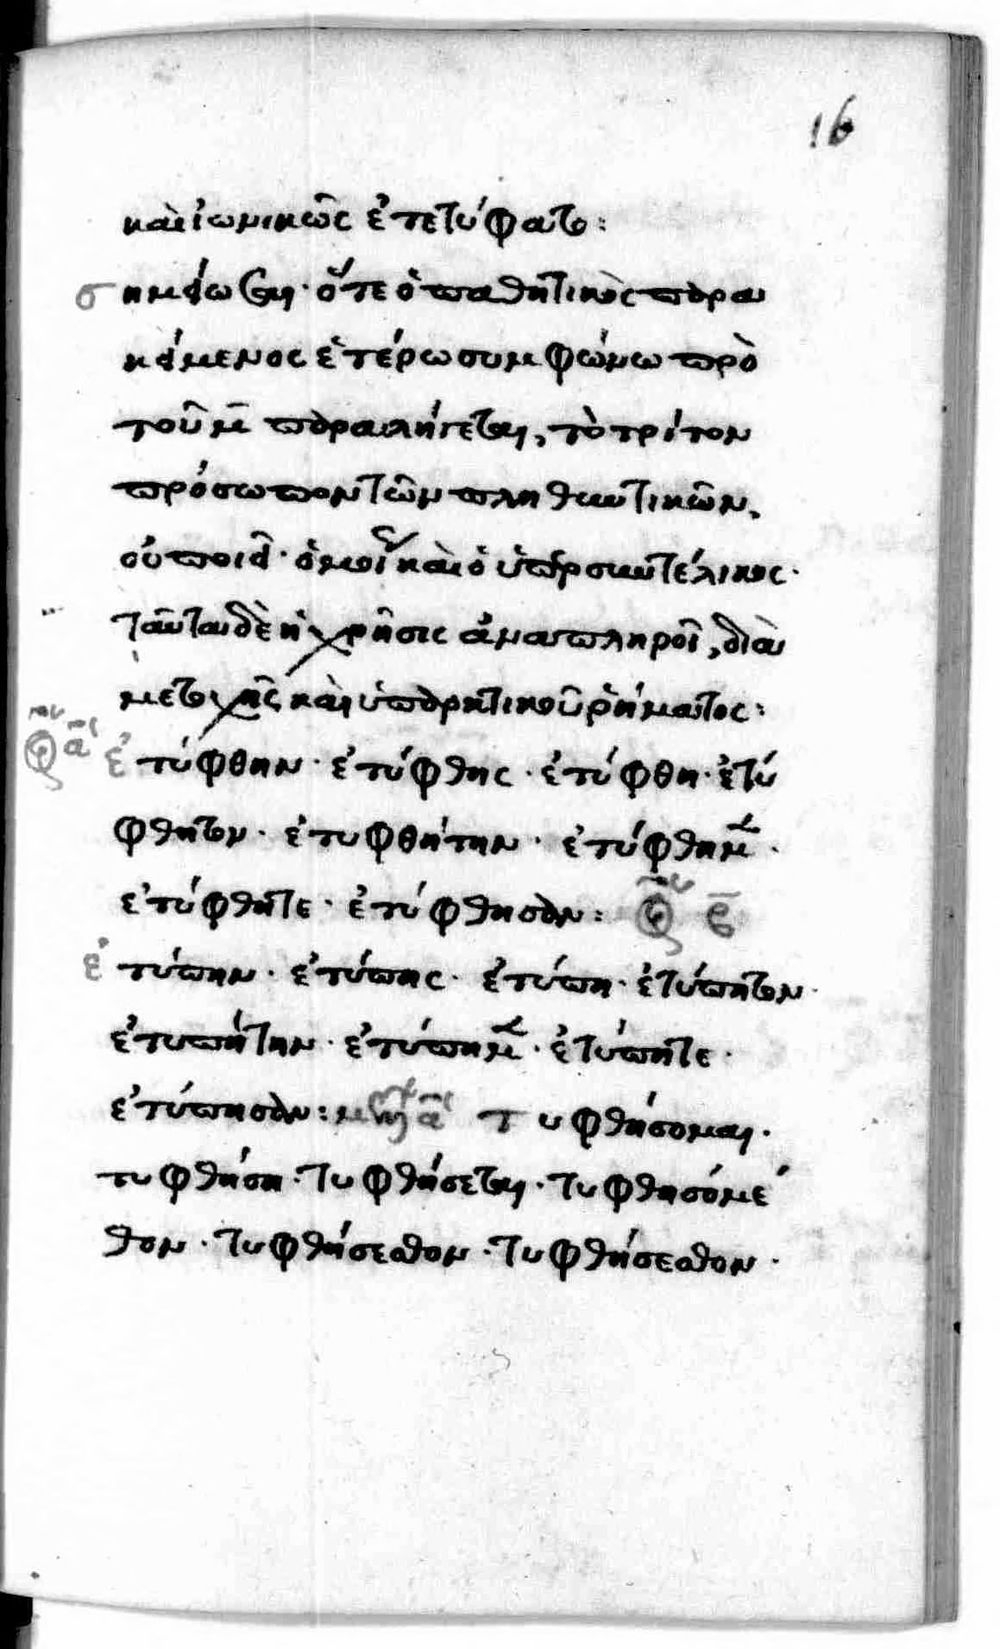 16
καὶ ἰωνικῶς ἐτετύφατο:
σημείωσαι· ὅτε ὁ παθητικὸς παρα
κείμενος ἑτέρω συμφώνω πρὸ
τοῦ μ̄ παραλήγεται, τὸ τρίτον
πρόσωπον τῶν πληθυντικῶν,
οὐ ποιεῖ· ὁμοί καὶ ὁ ὑπερσυντέλικος·
ταῦτα δὲ ἡ χρῆσις ἀναπληροῖ, διὰ
μετοχῆς καὶ ὑπαρκτικοῦ ῥήματος:
ἐτύφθην· ἐτύφθης· ἐτύφθη· ἐτύ
φθητον· ἐτυφθήτην· ἐτύφθημ·
ἐτύφθητε· ἐτύφθησαν:
ἐτύπην· ἐτύπης· ἐτύπη· ἐτύπητον·
ἐτυπήτην· ἐτύπημ· ἐτύπητε·
ἐτύπησαν: τυφθήσομαι·
τυφθήση· τυφθήσεται· τυφθησόμε
θον· τυφθήσεσθον· τυφθήσεσθον·